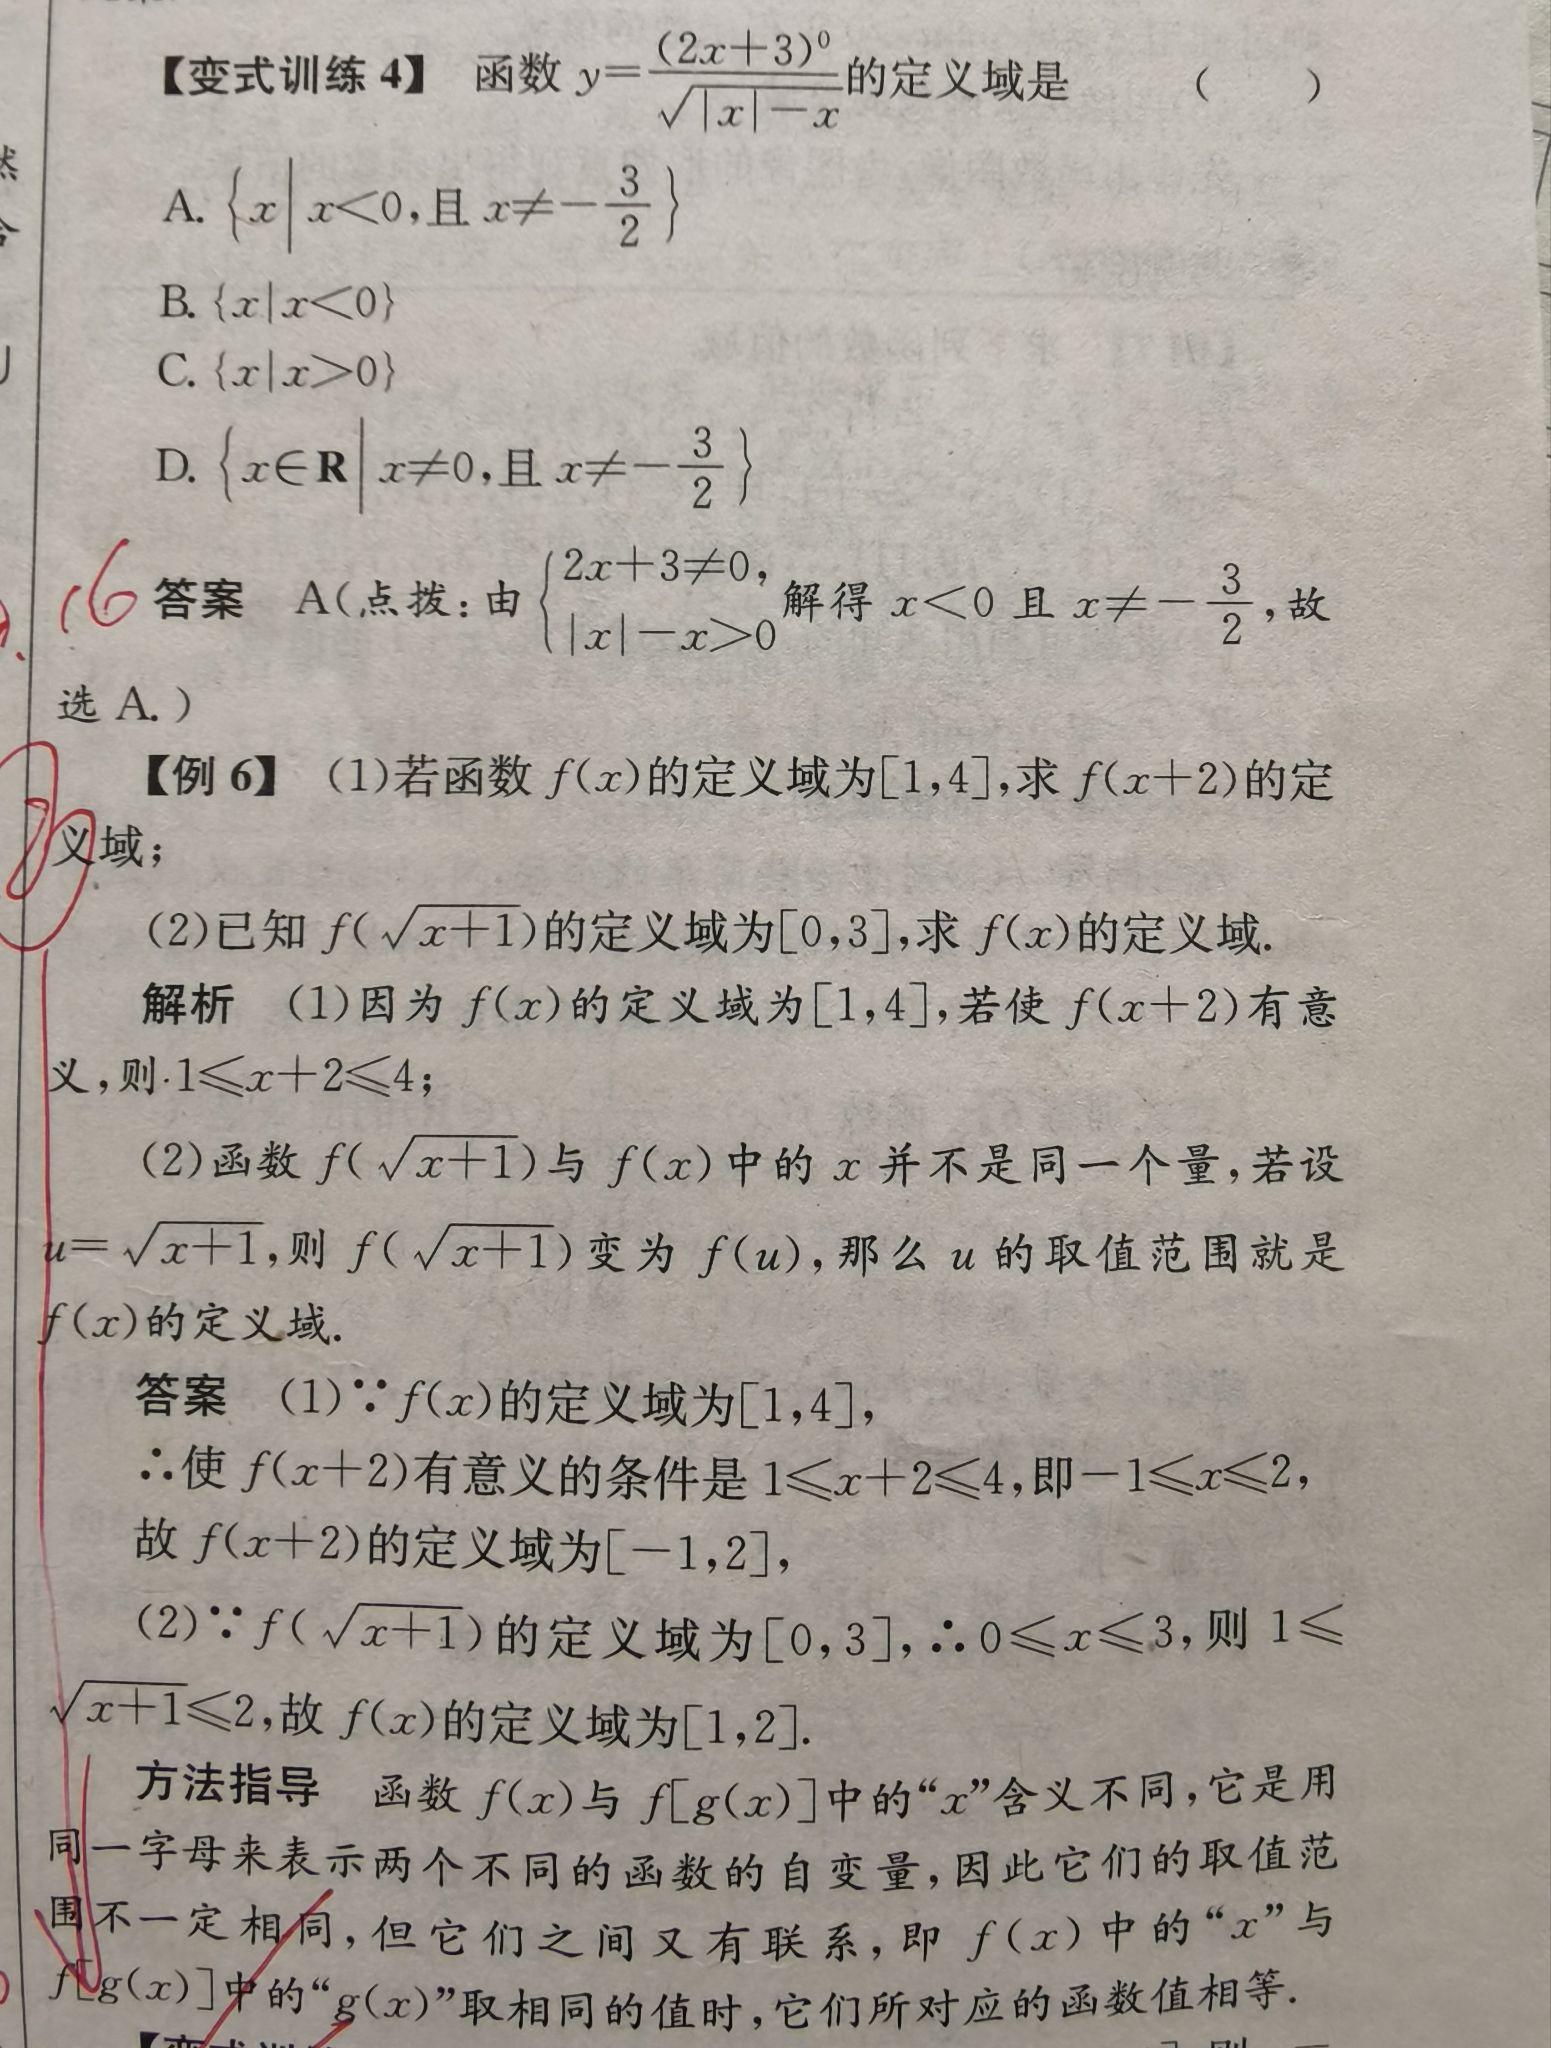 【变式训练4】 函数 y=\frac{(2x+3)^0}{\sqrt{|x|-x}}的定义域是 ( )
A. {x|x<0,且 x≠-\frac{3}{2}}
B. {x|x<0}
C. {x|x>0}
D. {x∈R|x≠0,且 x≠-\frac{3}{2}}
16 答案 A(点拨:由{2x+3≠0, |x|-x>0 解得 x<0 且 x≠-\frac{3}{2},故
选 A.)
【例6】 (1)若函数 f(x)的定义域为[1,4],求 f(x+2)的定
义域;
(2)已知 f(\sqrt{x+1})的定义域为[0,3],求 f(x)的定义域.
解析 (1)因为 f(x)的定义域为[1,4],若使 f(x+2)有意
义,则 1≤x+2≤4;
(2)函数 f(\sqrt{x+1})与 f(x)中的 x 并不是同一个量,若设
u=\sqrt{x+1},则 f(\sqrt{x+1})变为 f(u),那么 u 的取值范围就是
f(x)的定义域.
答案 (1)∵f(x)的定义域为[1,4],
∴使 f(x+2)有意义的条件是 1≤x+2≤4,即-1≤x≤2,
故 f(x+2)的定义域为[-1,2],
(2)∵f(\sqrt{x+1})的定义域为[0,3],∴0≤x≤3,则 1≤
\sqrt{x+1}≤2,故 f(x)的定义域为[1,2].
方法指导 函数 f(x)与 f[g(x)]中的“x”含义不同,它是用
同一字母来表示两个不同的函数的自变量,因此它们的取值范
围不一定相同,但它们之间又有联系,即 f(x)中的“x”与
f[g(x)]中的“g(x)”取相同的值时,它们所对应的函数值相等.
【变式训练